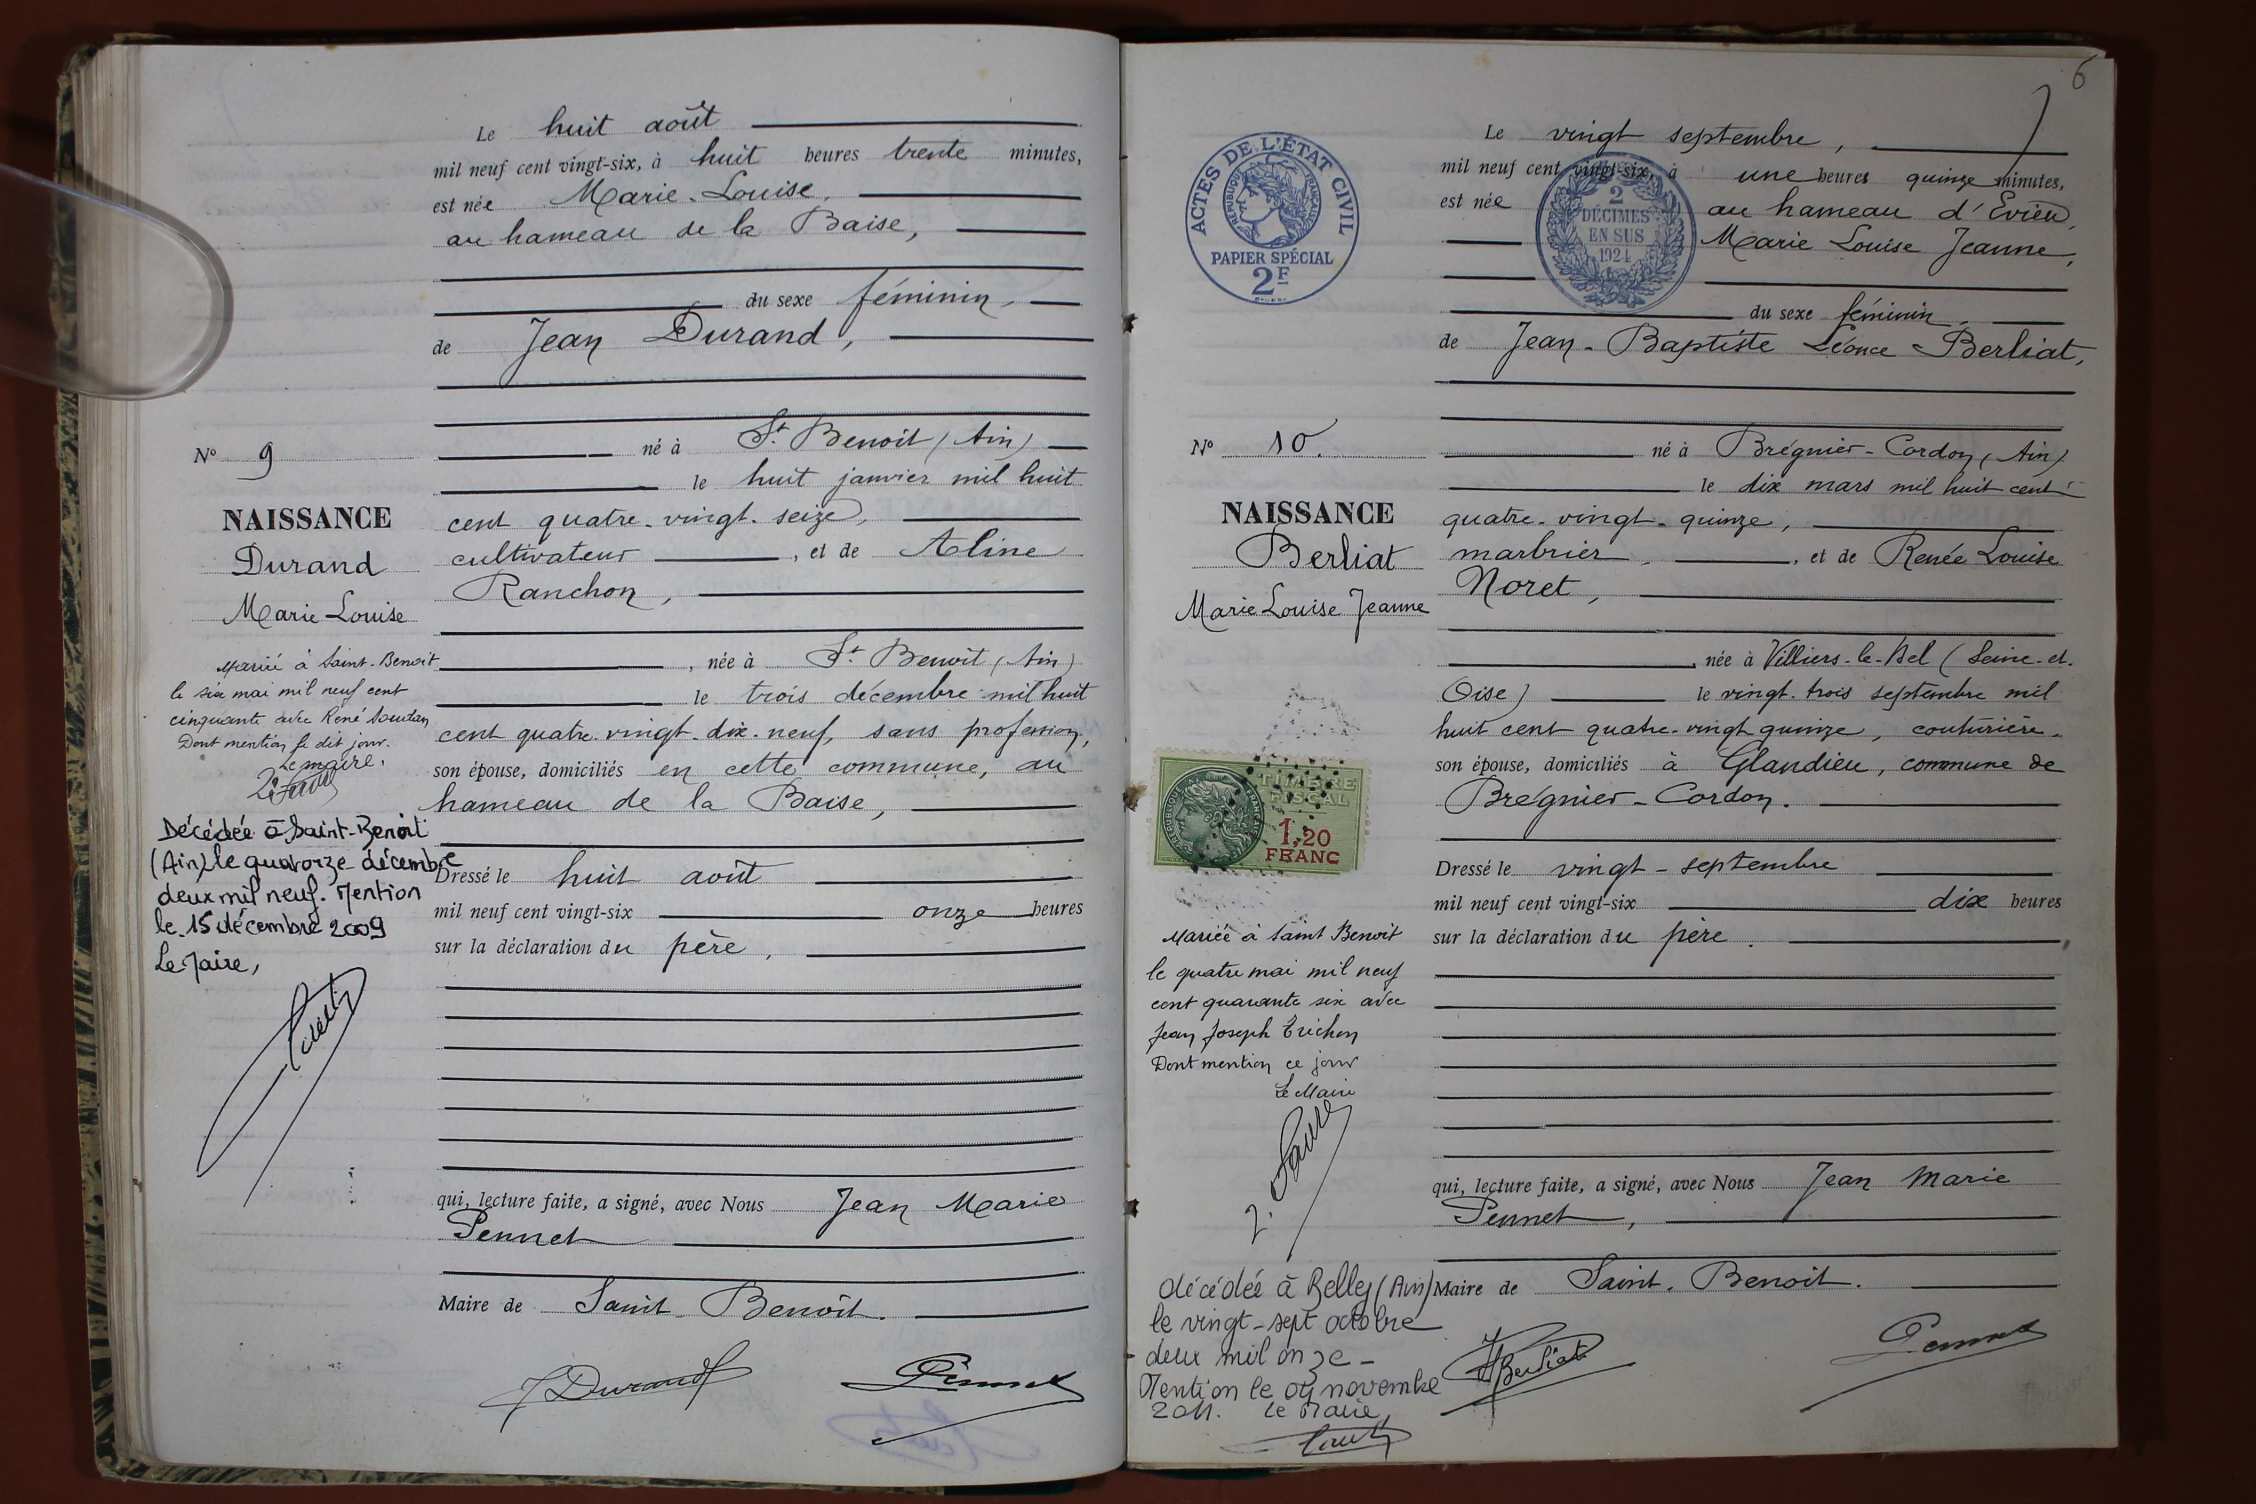 Le huit août
mil neuf cent vingt-six, à huit heures trente minutes,
est née Marie-Louise,
au hameau de la Baise,
du sexe féminin,
de Jean Durand,
né à St Benoit (Ain)
le huit janvier mil huit
cent quatre-vingt-seize,
cultivateur, et de Aline
Ranchon,
, née à St Benoit (Ain)
le trois décembre mil huit
cent quatre-vingt-dix-neuf, sans profession,
son épouse, domiciliés en cette commune, au
hameau de la Baise,
Dressé le huit août
mil neuf cent vingt-six onze heures
sur la déclaration du père,
qui, lecture faite, a signé, avec Nous Jean Marie
Pennet
Maire de Saint-Benoit.
J Durand
Pennet
No 9
NAISSANCE
Durand
Marie Louise
Mariée à Saint-Benoit
le six mai mil neuf cent
cinquante avec René
Dont mention le dit jour.
Le maire.
Décédée à Saint-Benoit
(Ain) le quatorze décembre
deux mil neuf. Mention
le 15 décembre 2009
Le Maire,
6
Le vingt septembre,
mil neuf cent vingt-six, à une heures quinze minutes,
est née au hameau d'Evieu,
Marie Louise Jeanne,
du sexe féminin,
de Jean-Baptiste Léonce Berliat,
né à Brégnier-Cordon (Ain)
le dix mars mil huit cent
quatre-vingt-quinze,
marbrier, et de Renée Louise
Noret,
, née à Villiers-le-Bel (Seine-et-
Oise) le vingt-trois septembre mil
huit cent quatre-vingt quinze, couturière,
son épouse, domiciliés à Glandieu, commune de
Brégnier-Cordon.
Dressé le vingt-septembre
mil neuf cent vingt-six dix heures
sur la déclaration du père.
qui, lecture faite, a signé, avec Nous Jean Marie
Pennet,
Maire de Saint-Benoit.
Berliat
Pennet
ACTES DE L'ÉTAT CIVIL
RÉPUBLIQUE FRANÇAISE
PAPIER SPÉCIAL
2F
2
DÉCIMES
EN SUS
1924
No 10.
NAISSANCE
Berliat
Marie Louise Jeanne
TIMBRE
FISCAL
RÉPUBLIQUE FRANÇAISE
1,20
FRANC
Mariée à Saint Benoit
le quatre mai mil neuf
cent quarante six avec
Jean Joseph Trichon
Dont mention ce jour
Le Maire
décédée à Belley (Ain)
le vingt-sept octobre
deux mil onze -
Mention le 04 novembre
2011. Le Maire,